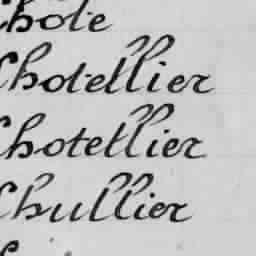 Chote
Chotellier
Chotellier
Chullier